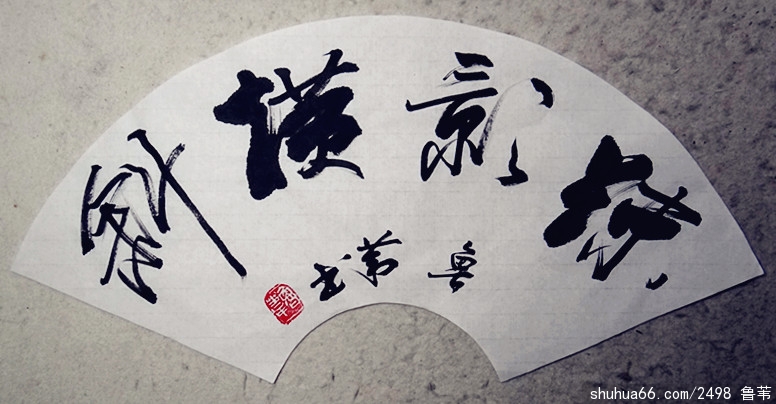 疏影横斜
鲁苇书
shuhua66.com/2498 鲁苇